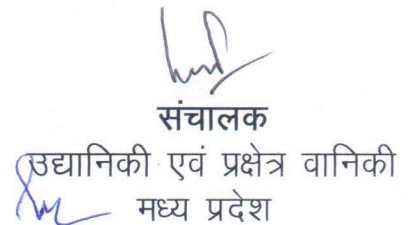 संचालक
उद्यानिकी एवं प्रक्षेत्र वानिकी
मध्य प्रदेश